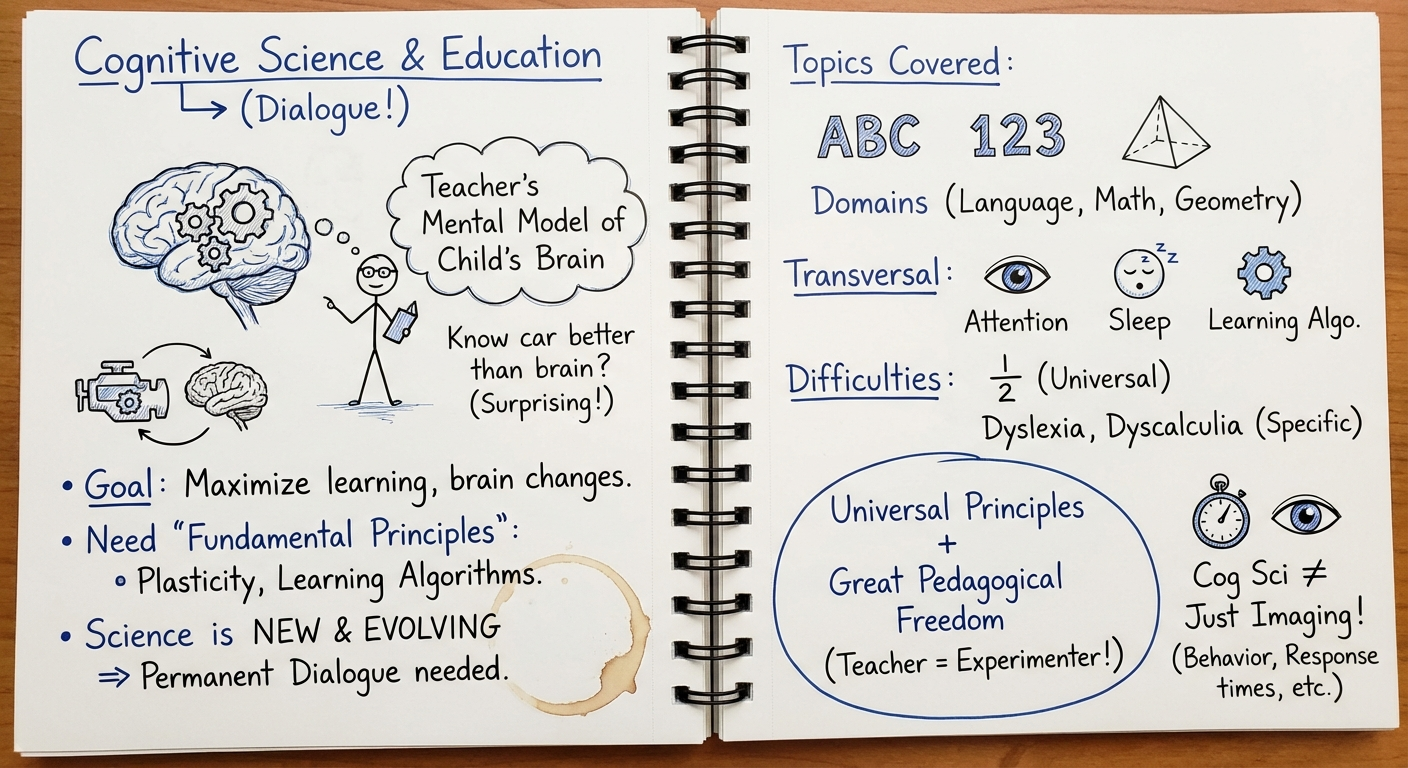 Cognitive Science & Education
(Dialogue!)
Teacher's
Mental Model of
Child's Brain
Know car better
than brain?
(Surprising!)
• Goal: Maximize learning, brain changes.
• Need "Fundamental Principles":
Plasticity, Learning Algorithms.
• Science is NEW & EVOLVING
⇒ Permanent Dialogue needed.
Topics Covered:
ABC 123
Domains (Language, Math, Geometry)
Transversal:
z z z
Attention Sleep Learning Algo.
Difficulties: 1/2 (Universal)
Dyslexia, Dyscalculia (Specific)
Universal Principles
+
Great Pedagogical
Freedom
(Teacher = Experimenter!)
Cog Sci ≠
Just Imaging!
(Behavior, Response
times, etc.)